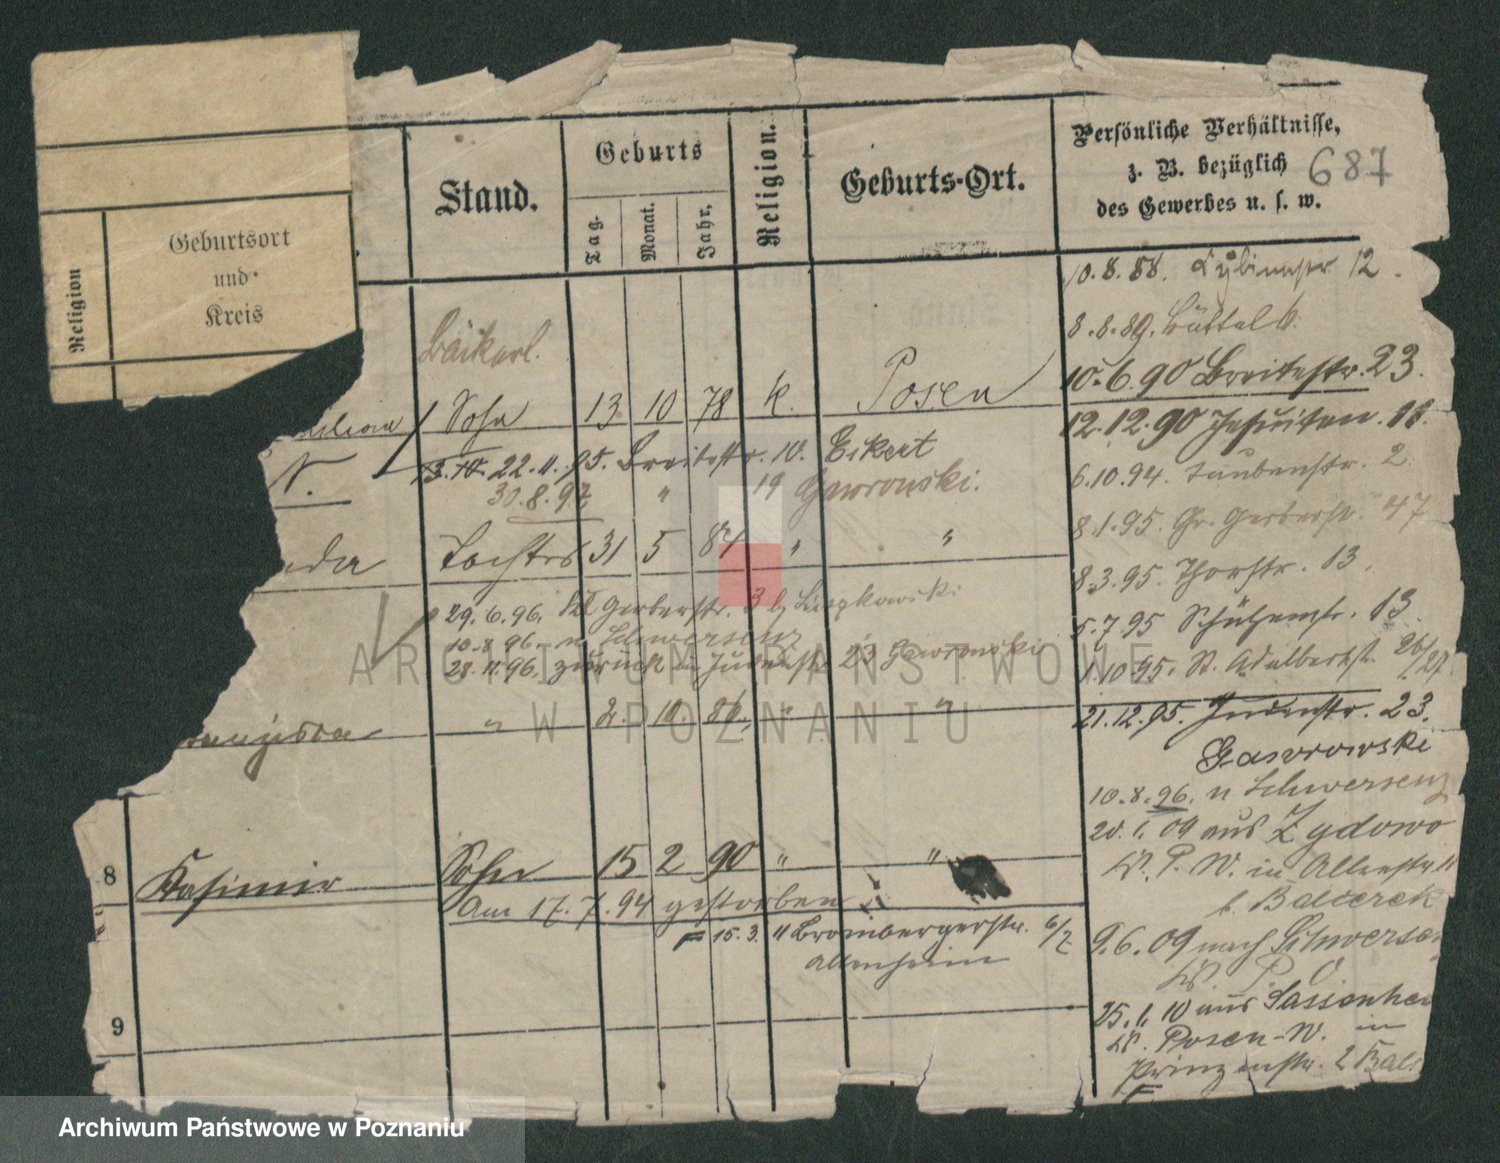 Religion
Geburtsort
und
Kreis
Stand.
Geburts
Tag.
Monat.
Jahr.
Religion.
Geburts-Ort.
Persönliche Verhältnisse,
z. B. bezüglich
des Gewerbes u. s. w.
687
10.8.88. 12.
8.8.89. Büttel 6.
10.6.90 Breitestr. 23.
12.12.90 Jesuiten. 11.
6.10.94. Taubenstr. 2
8.1.95. Gr. Gerberstr. 47
8.3.95. Thorstr. 13.
5.7.95 Schützenstr. 13
1.10.95. St. Adalbertst. 26/27.
21.12.95. Judenstr. 23.
Gawrowski
10.8.96. n Schwersenz
20.1.09 aus Zydowo
W. P. W. in Allenstr. 11
b. Balcerek
9.6.09 nach Schwersen
W. P. O.
25.1.10 aus Sassenhei
W. Posen-W. in
Prinzenstr. 2 Bal
Sohn 13 10 78 k. Posen
13.10. 22.11.95. Breitestr. 10. Eckert
30.8.97 " 19 Gawronski.
nda Tochter 31 5 81 " "
29.6.96. Gerberstr. 3 b Liszkowski
10.8.96. n Schwersenz
28.11.96. zurück Judenstr 23 Gawronski
" 2. 10. 86 " "
8 Kasimir Sohn 15 2 90 " "
Am 17.7.94 gestorben
F 15.3.11 Brombergerstr. 6/7
Allenheim
9
ARCHIWUM PAŃSTWOWE
W POZNANIU
Archiwum Państwowe w Poznaniu